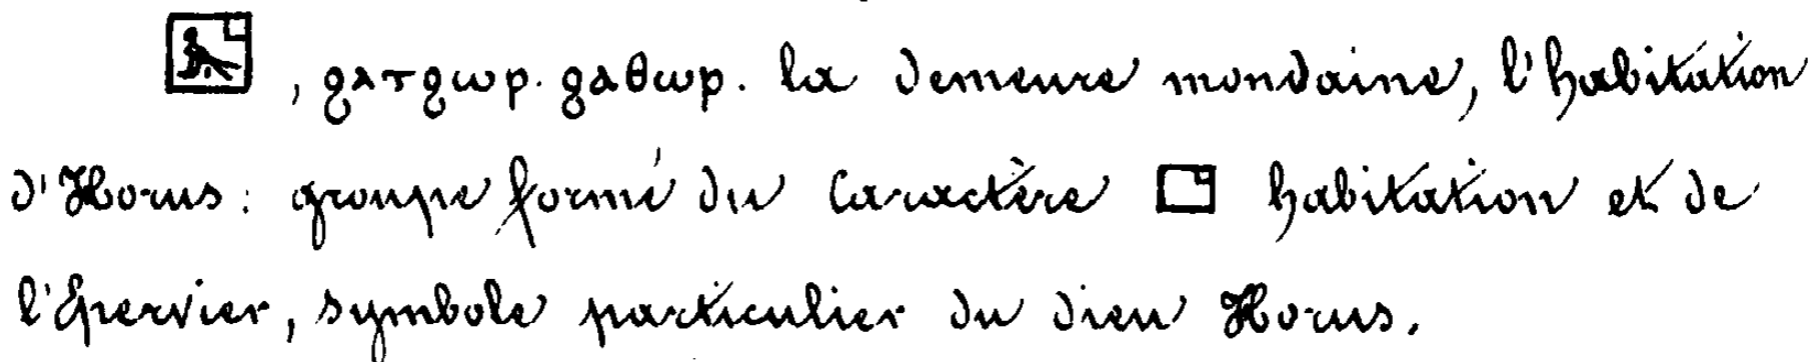 𓉡, ϩⲁⲧϩⲱⲣ. ϩⲁⲑⲱⲣ. la demeure mondaine, l'habitation
d'Horus: groupe formé du caractère 𓉗 habitation et de
l'Épervier, symbole particulier du dieu Horus.